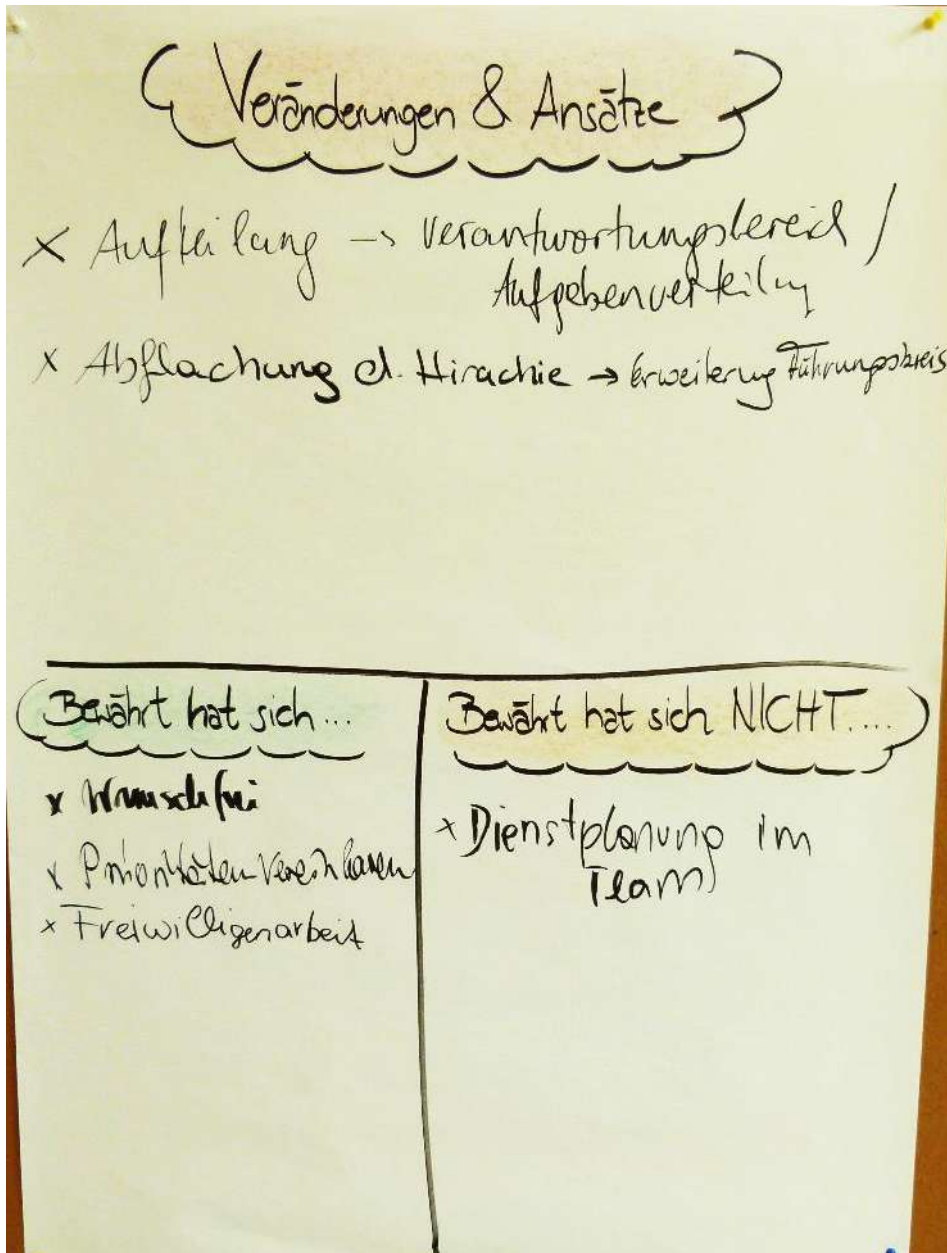 Veränderungen & Ansätze
x Aufteilung -> Verantwortungsbereich /
Aufgabenverteilung
x Abflachung d. Hirachie -> Erweiterung Führungskreis
Bewährt hat sich...
x Wunschfrei
x Prioritäten vereinbaren
x Freiwilligenarbeit
Bewährt hat sich NICHT....
x Dienstplanung im
Team